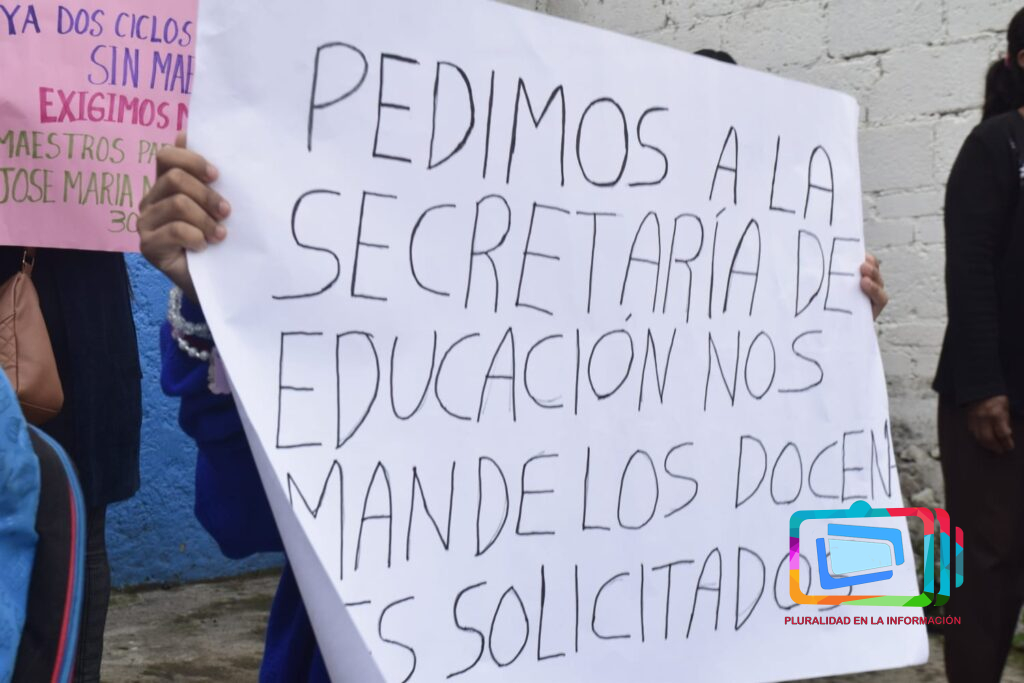 YA DOS CICLOS
SIN
EXIGIMOS
MAESTROS
JOSE MARIA
30
PEDIMOS A LA
SECRETARÍA DE
EDUCACIÓN NOS
MANDE LOS DOCEN
TS SOLICITADOS
PLURALIDAD EN LA INFORMACIÓN